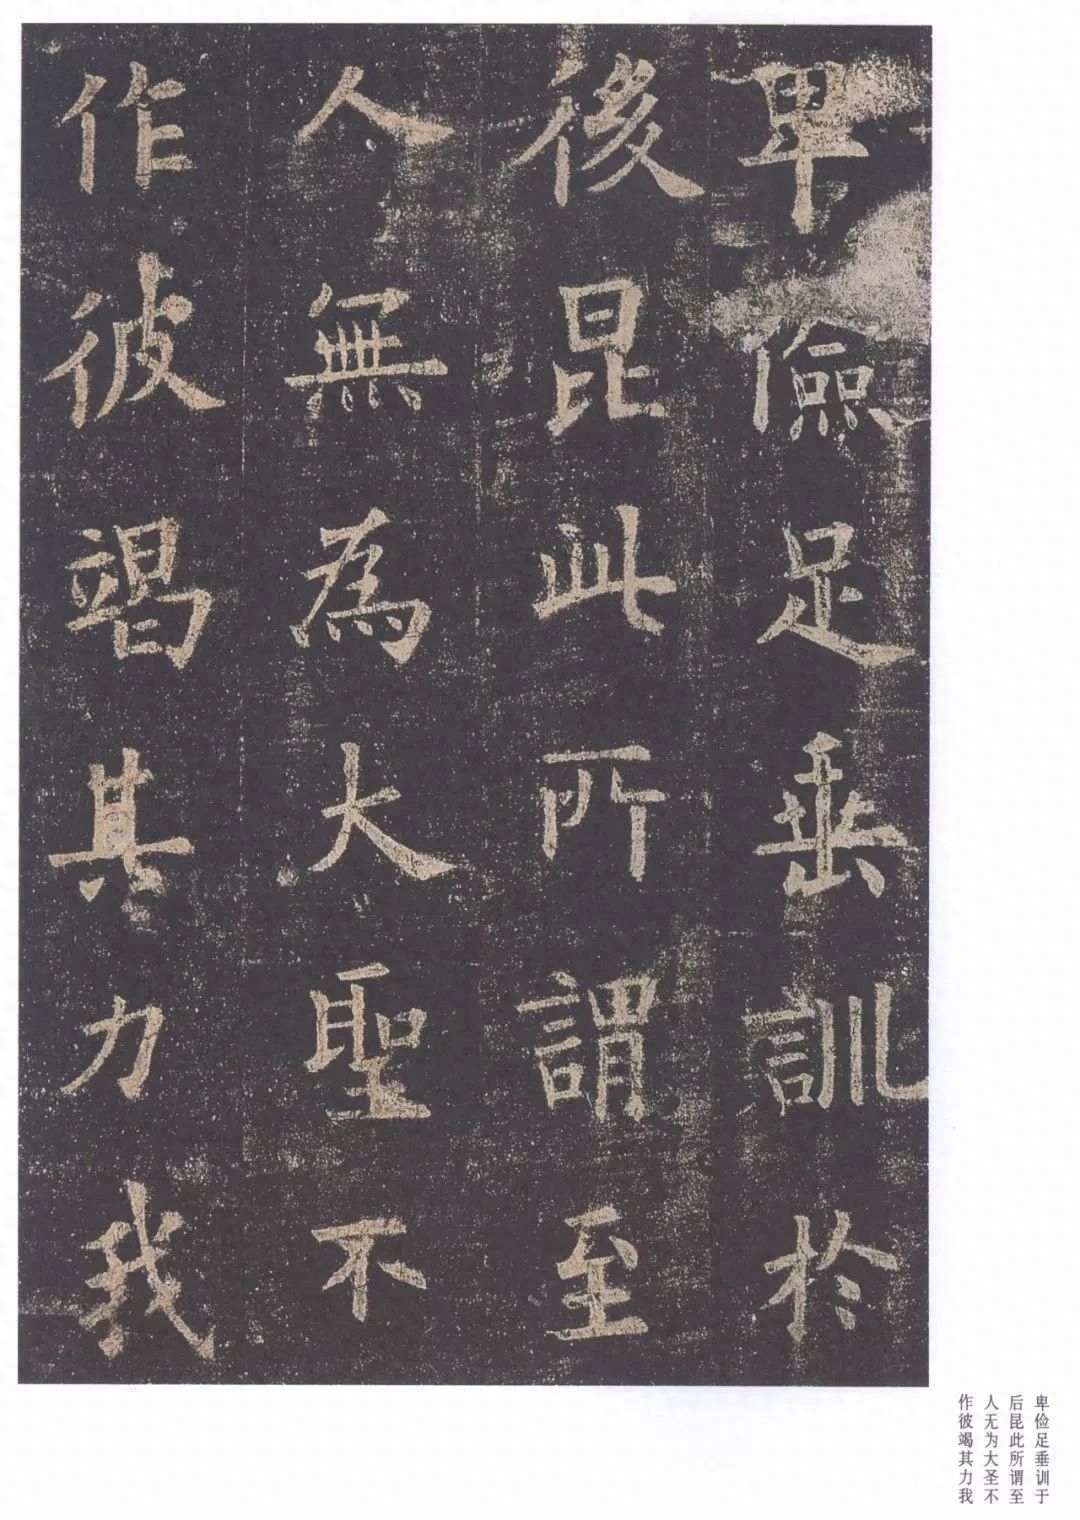 卑儉足垂訓於
後昆此所謂至
人無為大聖不
作彼竭其力我
卑俭足垂训于
后昆此所谓至
人无为大圣不
作彼竭其力我